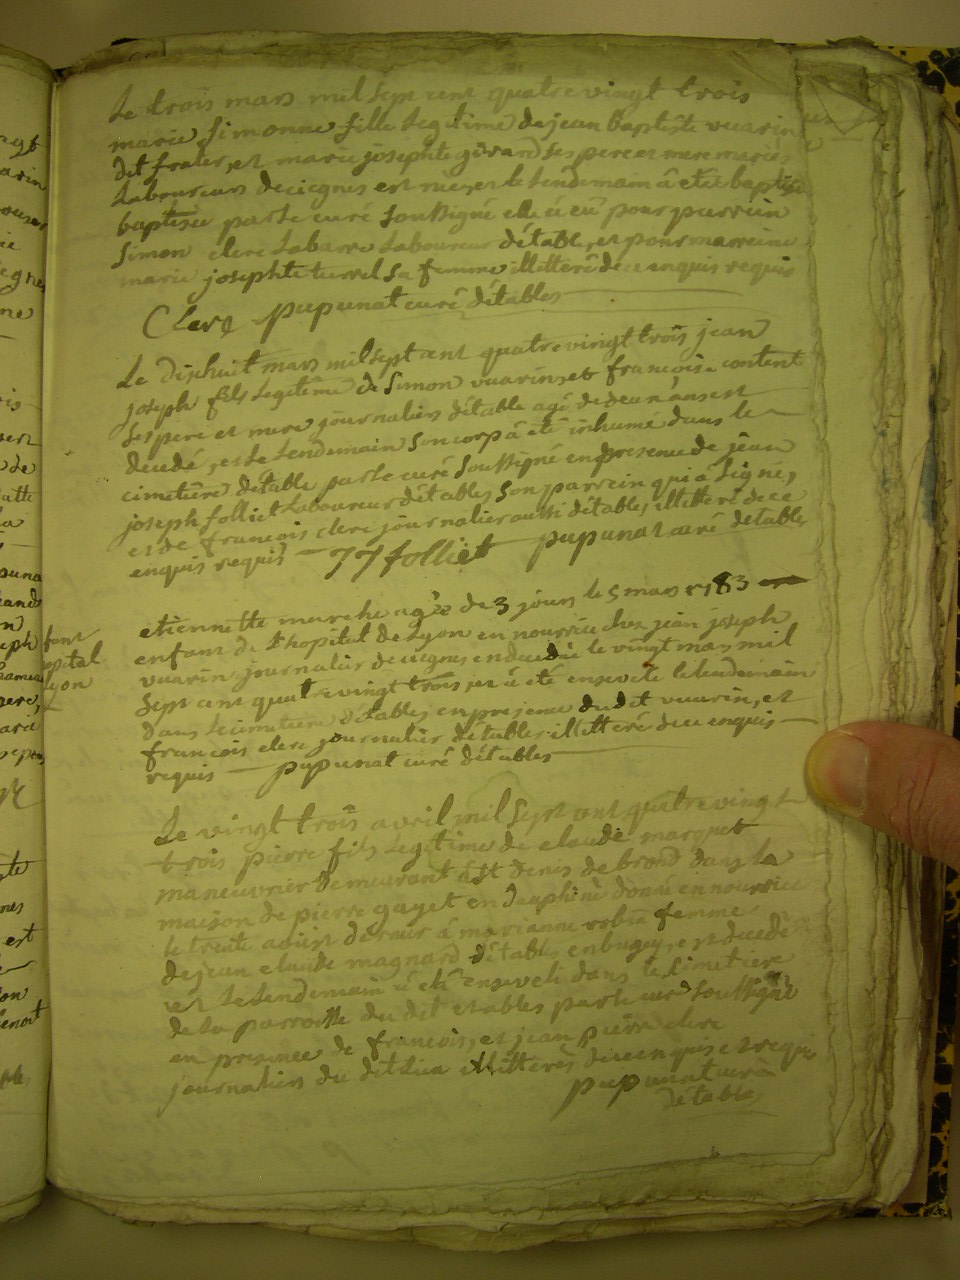 Le trois mars mil sept cent quatre vingt trois
marie simonne fille legitime de jean baptiste vuarin
dit frater, et marie josephte girard ses pere et mere mariés
Laboureurs de ciegnes est née, et le lendemain â etée baptise
baptisée par le curé soussigné elle â eû pour parrein
simon clerc Labarre Laboureur d'étable, et pour marreine
marie josephte turrel sa femme illitterê de ce enquis requis
Clerc pupunat curé d'étables
Le dixhuit mars mil sept cent quatre vingt trois jean
joseph fils legitime de simon vuarin, et françoise content
ses pere et mere journaliers d'étable agé de deux ans est
decedé, et le lendemain son corp â étê inhumé dans le
cimetiêre d'étable par le curé soussigné en presence de jean
joseph folliet Laboureur d'étables son parrein qui â signé,
et de francois clerc journalier aussi d'étables illitteré de ce
enquis requis JJ folliet pupunat curé d'etables
etiennette marche agée de 3 jours le 5 mars 1783
enfant de l'hopital de Lyon en nourrice chez jean joseph
vuarin journalier de ciegnes en decedé le vingt mars mil
sept cent quatre vingt trois, et â etê enseveli le lendemain
dans le cimetiere d'étables en presence du dit vuarin, et
francois clerc journalier d'étables illitteré de ce enquis
requis pupunat curé d'étables
Le vingt trois avril mil sept cent quatre vingt
trois pierre fils legitime de claude marquet
maneuvrier demeurant â st denis de brond dans la
maison de pierre guyet en dauphiné donné en nourrice
le trente â marianne robin femme
de jean claude magnard d'étables en bugey, est decedé
et le lendemain â etê enseveli dans le cimetiere
de la parroisse du dit etables par le curé soussigné
en presence de francois, et jean pierre clerc
journaliers du dit lieu illitterés de ce enquis et requis
pupunat curé
d'étables
fant
opital
yon